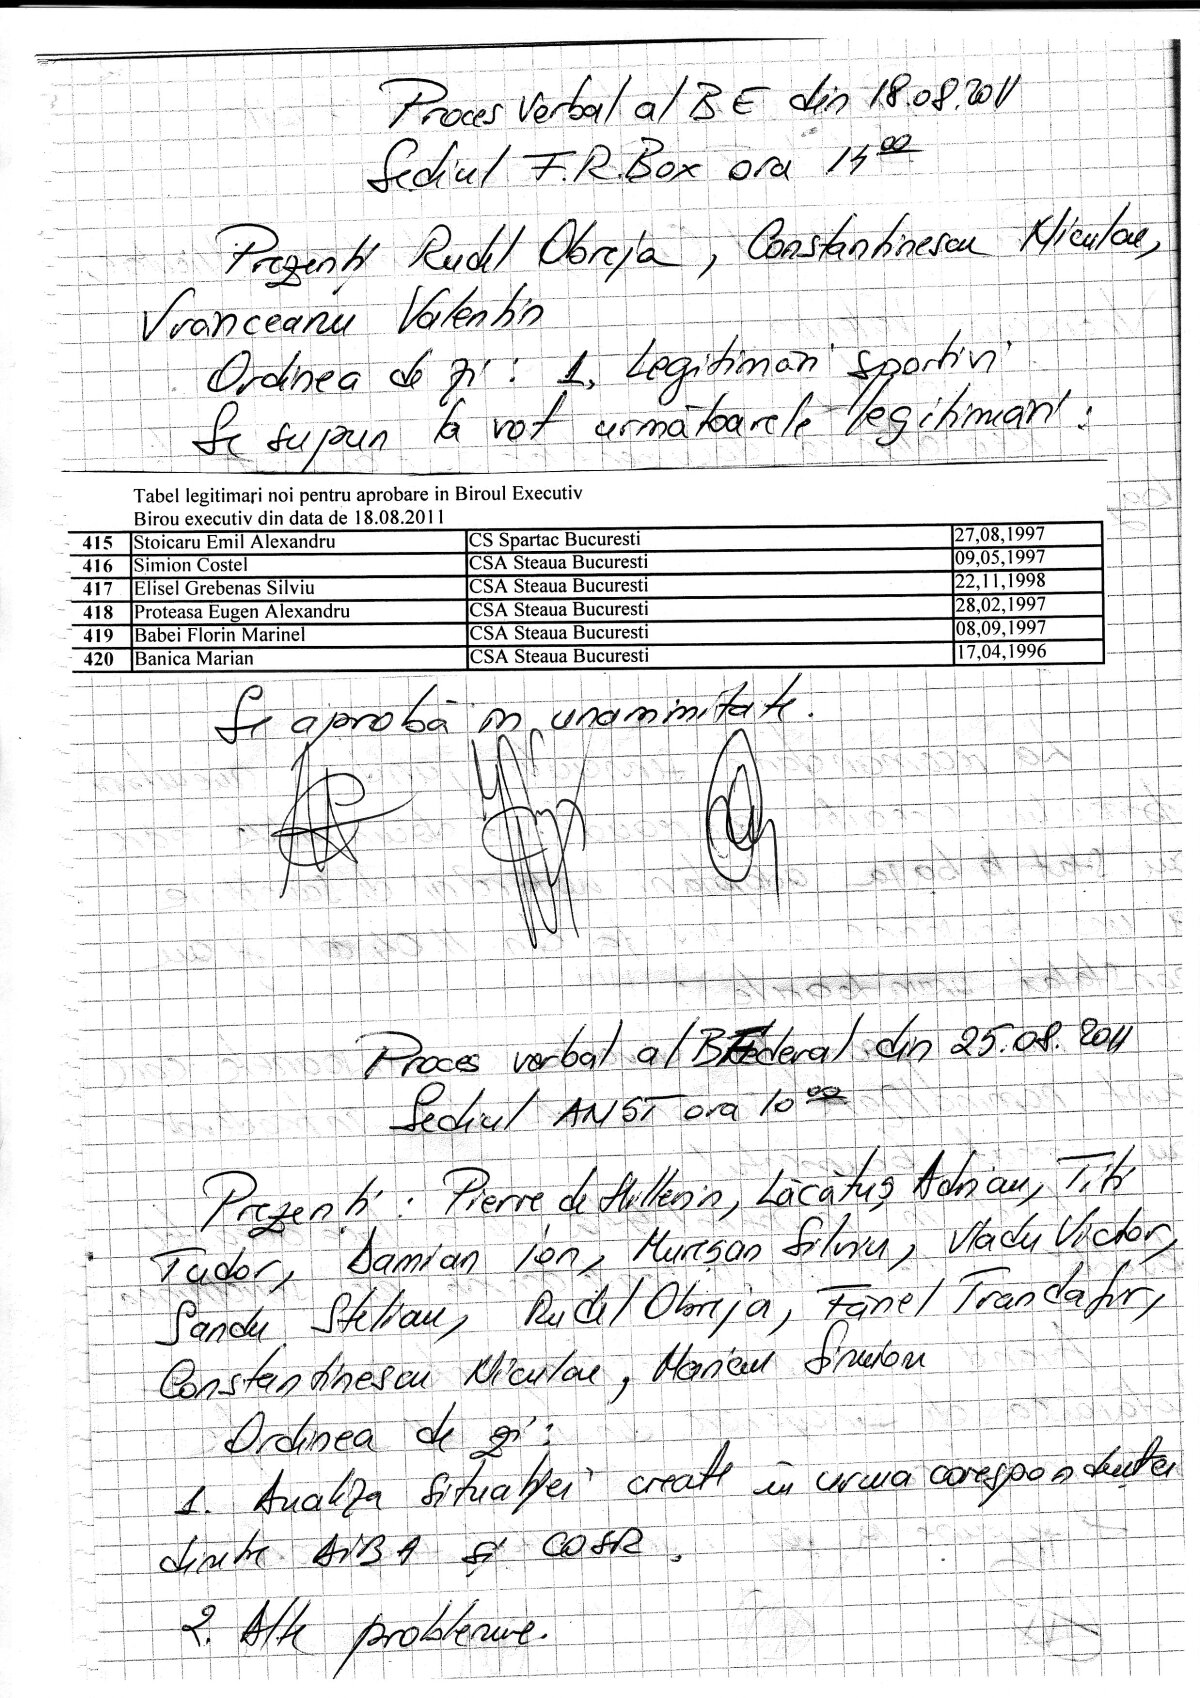 Proces verbal al BE din 18.08.2011
Sediul F.R.Box ora 14 00
Prezenți Rudel Obreja, Constantinescu Niculae,
Vranceanu Valentin
Ordinea de zi: 1. Legitimări sportivi
Se supun la vot următoarele legitimări:
Tabel legitimari noi pentru aprobare in Biroul Executiv
Birou executiv din data de 18.08.2011
415 Stoicaru Emil Alexandru CS Spartac Bucuresti 27,08,1997
416 Simion Costel CSA Steaua Bucuresti 09,05,1997
417 Elisel Grebenas Silviu CSA Steaua Bucuresti 22,11,1998
418 Proteasa Eugen Alexandru CSA Steaua Bucuresti 28,02,1997
419 Babei Florin Marinel CSA Steaua Bucuresti 08,09,1997
420 Banica Marian CSA Steaua Bucuresti 17,04,1996
Se aprobă in unanimitate.
Proces verbal al BFederal din 25.08.2011
Sediul ANST ora 10 00
Prezenți: Pierre de Hillerin, Lăcătuș Adrian, Titi
Tudor, Damian Ion, Mureșan Silviu, Vladu Victor,
Sandu Stelian, Rudel Obreja, Fănel Trandafir,
Constantinescu Niculae, Marian Simion
Ordinea de zi:
1. Analiza situației create în urma corespondenței
dintre AIBA și COSR.
2. Alte probleme.